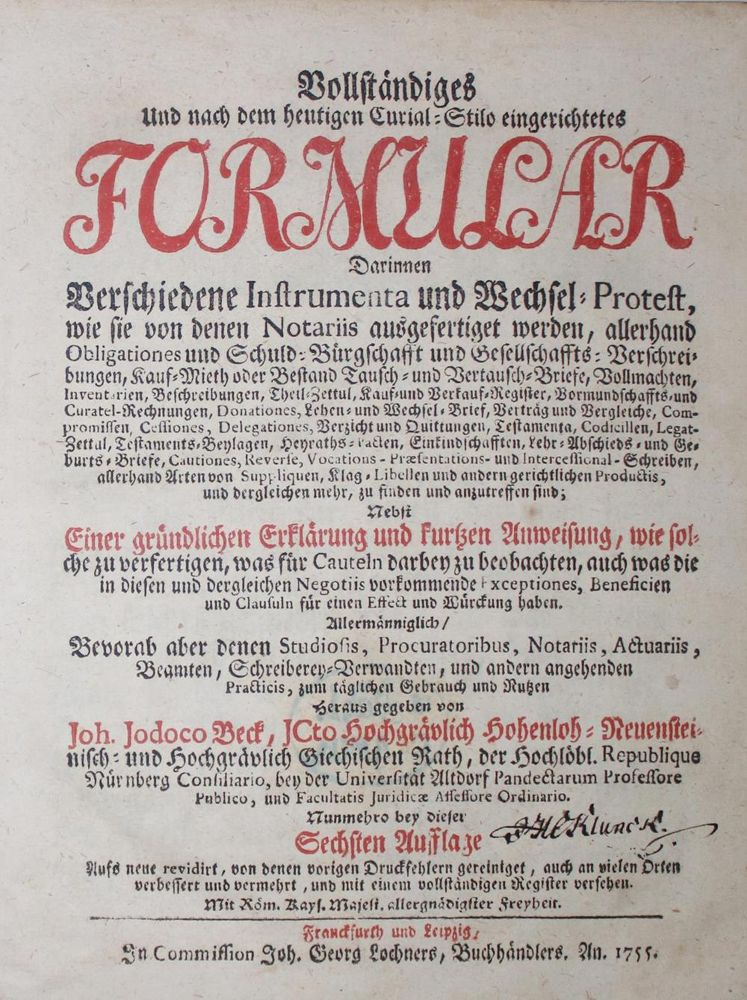 Vollständiges
Und nach dem heutigen Curial-Stilo eingerichtetes
FORMULAR
Darinnen
Verschiedene Instrumenta und Wechsel-Protest,
wie sie von denen Notariis ausgefertiget werden, allerhand
Obligationes und Schuld-Bürgschafft und Gesellschaffts-Verschrei-
bungen, Kauf-Mieth oder Bestand Tausch- und Vertausch-Briefe, Vollmachten,
Inventarien, Beschreibungen, Theil-Zettul, Kauf-und Verkauf-Register, Vormundschaffts-und
Curatel-Rechnungen, Donationes, Lehen-und Wechsel-Brief, Verträg und Vergleiche, Com-
promissen, Cessiones, Delegationes, Verzicht und Quittungen, Testamenta, Codicillen, Legat-
Zettul, Testaments-Beylagen, Heyraths-Pacten, Einkindschafften, Lehr-Abschieds- und Ge-
burts-Briefe, Cautiones, Reverse, Vocations-Præsentations- und Intercessional-Schreiben,
allerhand Arten von Suppliquen, Klag-Libellen und andern gerichtlichen Productis,
und dergleichen mehr, zu finden und anzutreffen sind;
Nebst
Einer gründlichen Erklärung und kurtzen Anweisung, wie sol-
che zu verfertigen, was für Cauteln darbey zu beobachten, auch was die
in diesen und dergleichen Negotiis vorkommende Exceptiones, Beneficien
und Clausuln für einen Effect und Würckung haben.
Allermänniglich/
Bevorab aber denen Studiosis, Procuratoribus, Notariis, Actuariis,
Beamten, Schreiberey-Verwandten, und andern angehenden
Practicis, zum täglichen Gebrauch und Nutzen
Heraus gegeben von
Joh. Jodoco Beck, JCto Hochgrävlich Hohenloh-Neuenstei-
nisch- und Hochgrävlich Giechischen Rath, der Hochlöbl. Republique
Nürnberg Consiliario, bey der Universität Altdorf Pandectarum Professore
Publico, und Facultatis Juridicæ Assessore Ordinario.
Nunmehro bey dieser
Sechsten Auflage
Aufs neue revidirt, von denen vorigen Druckfehlern gereiniget, auch an vielen Orten
verbessert und vermehrt, und mit einem vollständigen Register versehen.
Mit Röm. Kays. Majest. allergnädigster Freyheit.
Franckfurth und Leipzig,
In Commission Joh. Georg Lochners, Buchhändlers. An. 1755.